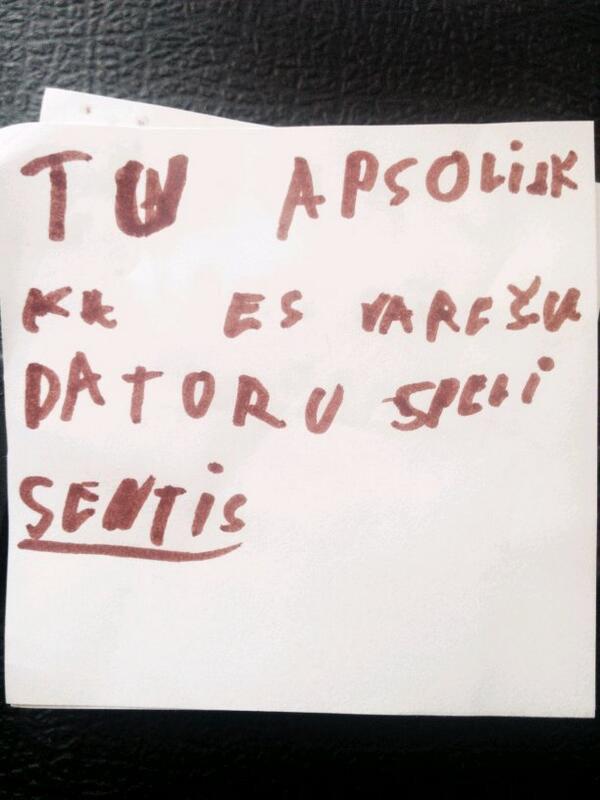 TU APSOLiJK
KK ES VAREŠU
DATORU SPELi
SENTiS